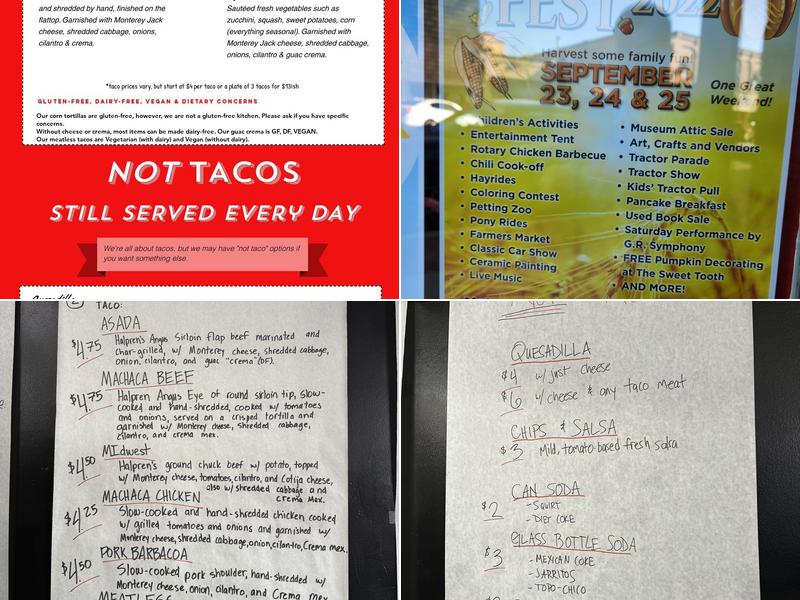 and shredded by hand, finished on the
flattop. Garnished with Monterey Jack
cheese, shredded cabbage, onions,
cilantro & crema.
Sautéed fresh vegetables such as
zucchini, squash, sweet potatoes, corn
(everything seasonal). Garnished with
Monterey Jack cheese, shredded cabbage,
onions, cilantro & guac crema.
*taco prices vary, but start at $4 per taco or a plate of 3 tacos for $13ish
GLUTEN-FREE, DAIRY-FREE, VEGAN & DIETARY CONCERNS
Our corn tortillas are gluten-free, however, we are not a gluten-free kitchen. Please ask if you have specific
concerns.
Without cheese or crema, most items can be made dairy-free. Our guac crema is GF, DF, VEGAN.
Our meatless tacos are Vegetarian (with dairy) and Vegan (without dairy).
NOT TACOS
STILL SERVED EVERY DAY
We're all about tacos, but we may have "not taco" options if
you want something else.
FEST 2022
Harvest some family fun!
SEPTEMBER
23, 24 & 25
One Great
Weekend!
• Children's Activities
• Entertainment Tent
• Rotary Chicken Barbecue
• Chili Cook-off
• Hayrides
• Coloring Contest
• Petting Zoo
• Pony Rides
• Farmers Market
• Classic Car Show
• Ceramic Painting
• Live Music
• Museum Attic Sale
• Art, Crafts and Vendors
• Tractor Parade
• Tractor Show
• Kids' Tractor Pull
• Pancake Breakfast
• Used Book Sale
• Saturday Performance by
G.R. Symphony
• FREE Pumpkin Decorating
at The Sweet Tooth
• AND MORE!
TACO:
ASADA
$4.75 Halpren's Angus Sirloin flap beef marinated and
char-grilled, w/ Monterey cheese, shredded cabbage,
onion, cilantro, and guac "crema" (DF).
MACHACA BEEF
$4.75 Halpren Angus Eye of round sirloin tip, slow-
cooked and hand-shredded, cooked w/ tomatoes
and onions, served on a crisped tortilla and
garnished w/ Monterey cheese, shredded cabbage,
cilantro, and crema mex.
MIdwest
$4.50 Halpren's ground chuck beef w/ potato, topped
w/ Monterey cheese, tomatoes, cilantro, and Cotija cheese,
also w/ shredded cabbage and
crema Mex.
MACHACA CHICKEN
$4.25 Slow-cooked and hand-shredded chicken cooked
w/ grilled tomatoes and onions and garnished w/
Monterey cheese, shredded cabbage, onion, cilantro, Crema mex.
PORK BARBACOA
$4.50 Slow-cooked pork shoulder, hand-shredded w/
Monterey cheese, onion, cilantro, and Crema mex
MEATLESS
QUESADILLA
$4 w/ just cheese
$6 w/ cheese & any taco meat
CHIPS & SALSA
$3 Mild, tomato-based fresh salsa
CAN SODA
$2 - SQUIRT
- DIET COKE
GLASS BOTTLE SODA
$3 - MEXICAN COKE
- JARRITOS
- TOPO-CHICO